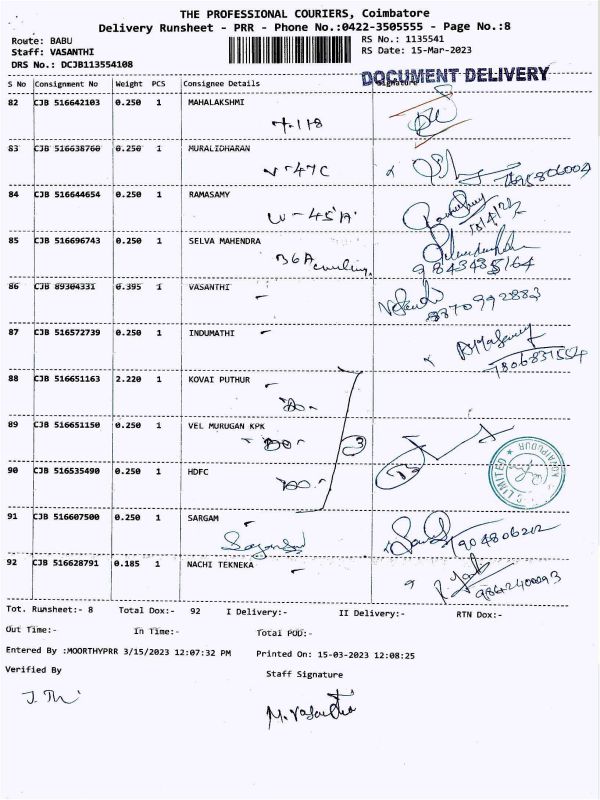 THE PROFESSIONAL COURIERS, Coimbatore
Delivery Runsheet - PRR - Phone No.:0422-3505555 - Page No.:8
Route: BABU RS No.: 1135541
Staff: VASANTHI RS Date: 15-Mar-2023
DRS No.: DCJB113554108
DOCUMENT DELIVERY
S No Consignment No Weight PCS Consignee Details Signature
82 CJB 516642103 0.250 1 MAHALAKSHMI
83 CJB 516638760 0.250 1 MURALIDHARAN
V-47C
84 CJB 516644654 0.250 1 RAMASAMY
W-45'A'
85 CJB 516696743 0.250 1 SELVA MAHENDRA
36A
9843485164
86 CJB 89304331 0.395 1 VASANTHI
8870992883
87 CJB 516572739 0.250 1 INDUMATHI
7806831554
88 CJB 516651163 2.220 1 KOVAI PUTHUR
89 CJB 516651150 0.250 1 VEL MURUGAN KPK
3
90 CJB 516535490 0.250 1 HDFC
91 CJB 516607500 0.250 1 SARGAM
92 CJB 516628791 0.185 1 NACHI TEKNEKA
9842400093
Tot. Runsheet:- 8 Total Dox:- 92 I Delivery:- II Delivery:- RTN Dox:-
Out Time:- In Time:- Total POD:-
Entered By :MOORTHYPRR 3/15/2023 12:07:32 PM Printed On: 15-03-2023 12:08:25
Verified By Staff Signature
M. Vasantha